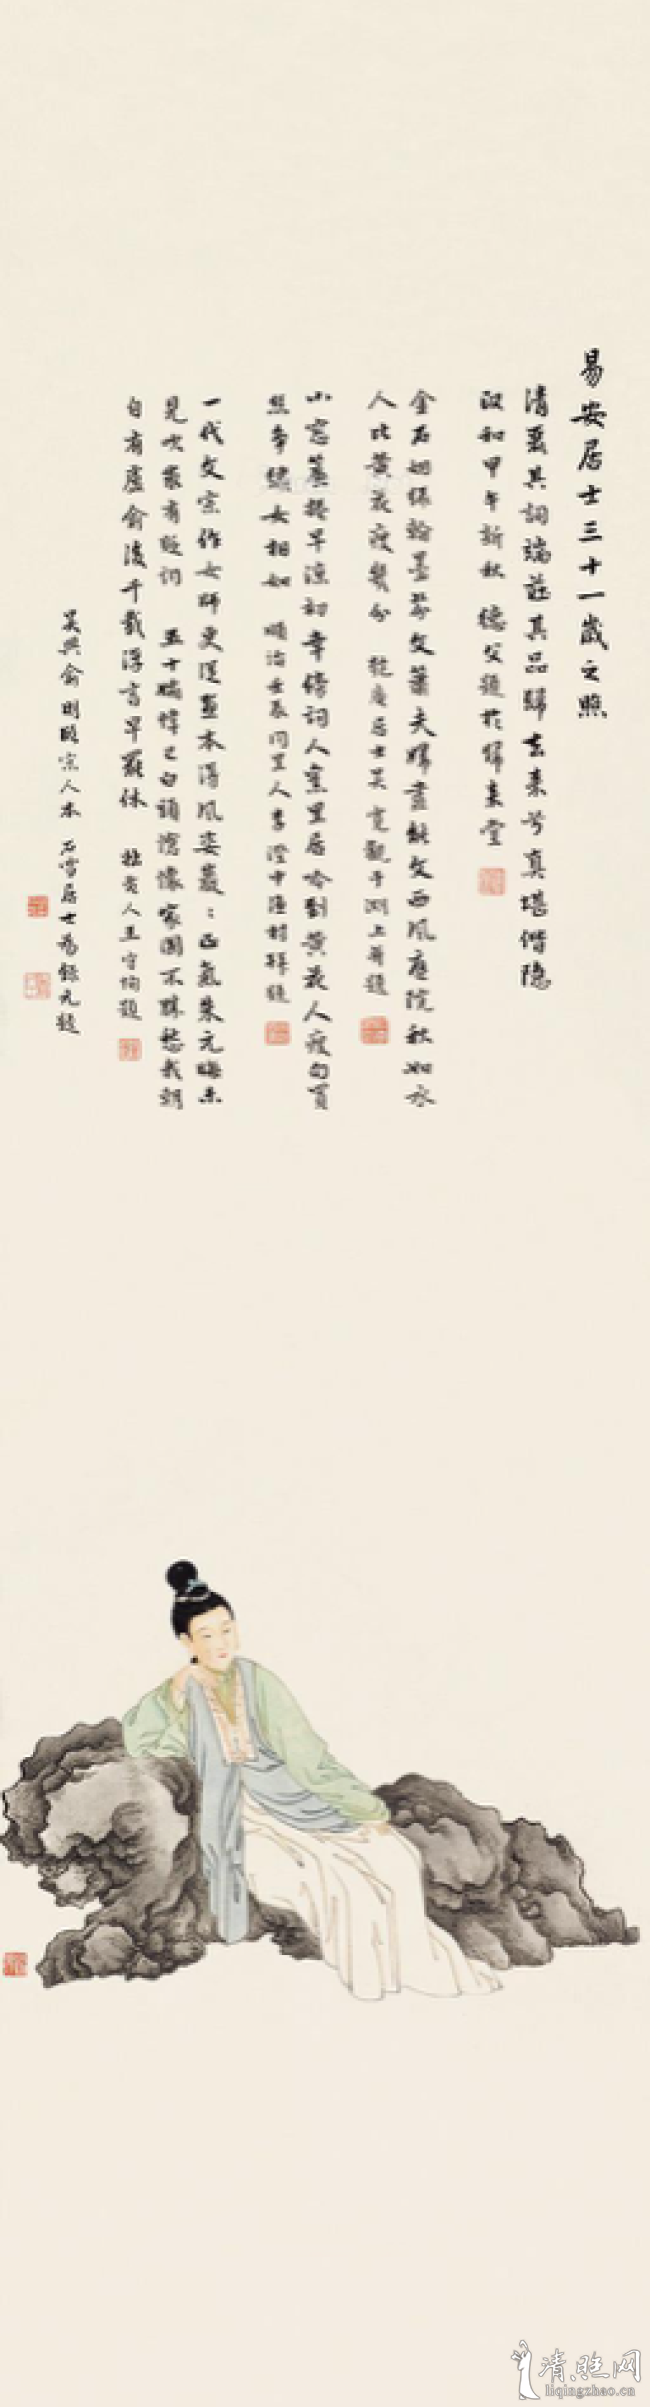 易安居士三十一歲之照
清麗其詞端莊其品歸去來兮真堪偕隱
政和甲午新秋 德父題於歸來堂
金石姻緣翰墨芬文簫夫婦盡能文西風庭院秋如水
人比黃花瘦幾分 乾 居士吳寬觀于湖上並題
小窗簾捲早涼初幸傍詞人舊里居吟到黃花人瘦句買
絲爭繡女相如 順治 同里人李澄中漁村拜題
一代文宗作女師更從畫本得風姿嚴嚴正氣朱元晦未
見吹 有貶詞 五十 已白頭憶 家國不勝愁我朝
自有盧俞後千載浮言早罷休 王守恂題
吳興俞明頤宗人本 石雪居士為錄元題
清照网
liqingzhao.cn